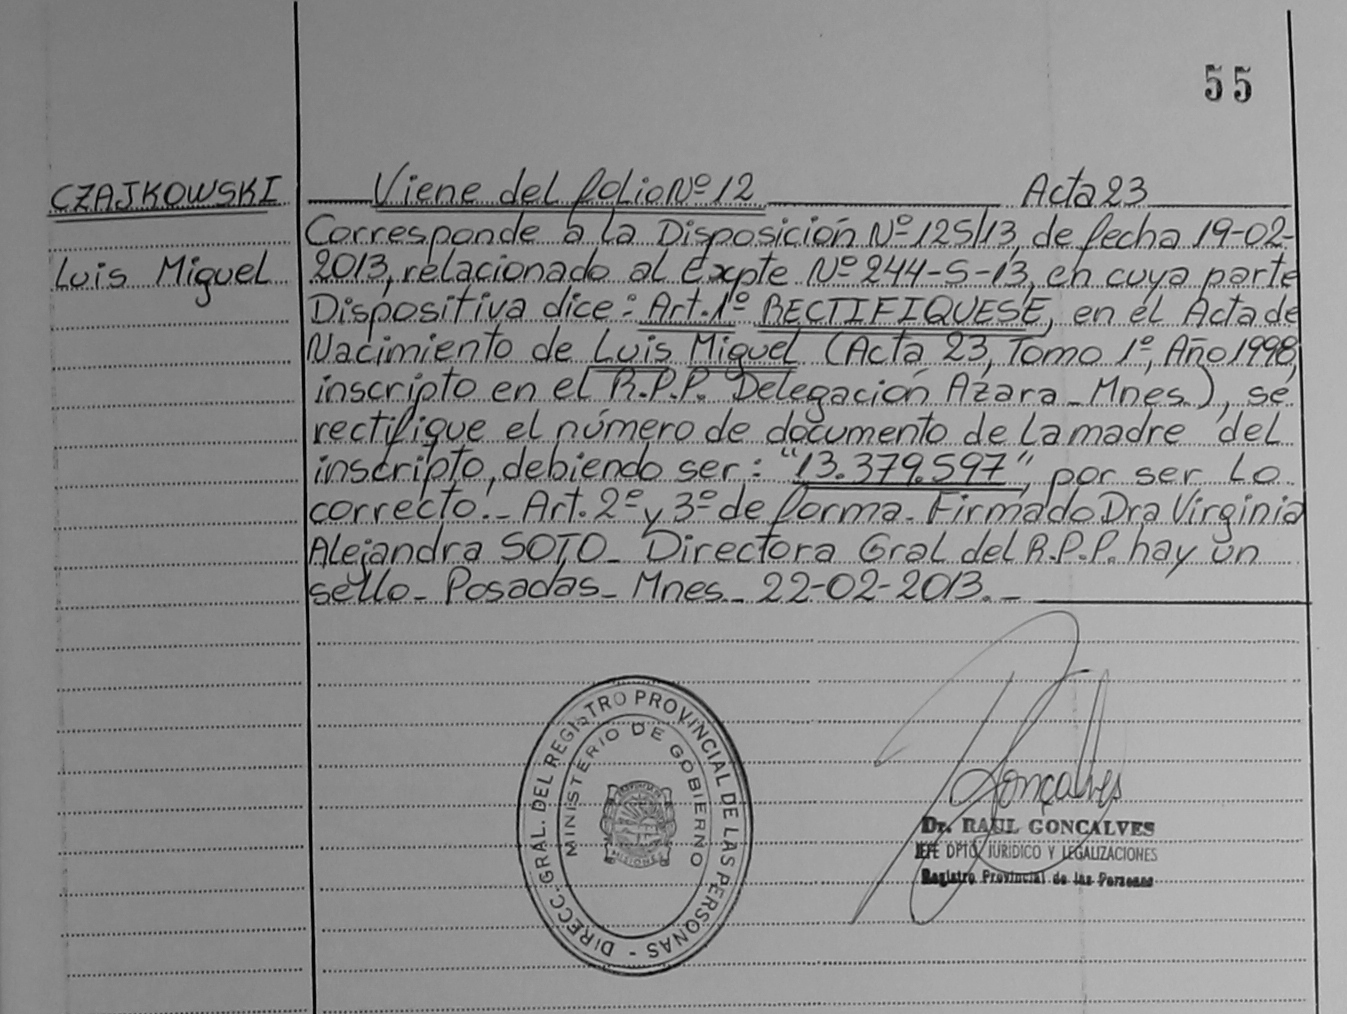 55
CZAJKOWSKI
Luis Miguel
Viene del folio Nº 12 Acta 23
Corresponde a la Disposición Nº 125/13, de fecha 19-02-
2013, relacionado al Expte Nº 244-S-13, en cuya parte
Dispositiva dice: Art. 1º RECTIFIQUESE, en el Acta de
Nacimiento de Luis Miguel (Acta 23, Tomo 1º, Año 1998,
inscripto en el R.P.P. Delegación Azara - Mnes.), se
rectifique el número de documento de la madre del
inscripto, debiendo ser: "13.379.597", por ser lo
correcto.- Art. 2º y 3º de forma. Firmado Dra Virginia
Alejandra SOTO - Directora Gral del R.P.P. hay un
sello - Posadas - Mnes - 22-02-2013. -
DIRECC. GRAL. DEL REGISTRO PROVINCIAL DE LAS PERSONAS -
MINISTERIO DE GOBIERNO
MISIONES
Gonçalves
Dr. RAUL GONCALVES
JEFE DPTO. JURIDICO Y LEGALIZACIONES
Registro Provincial de las Personas